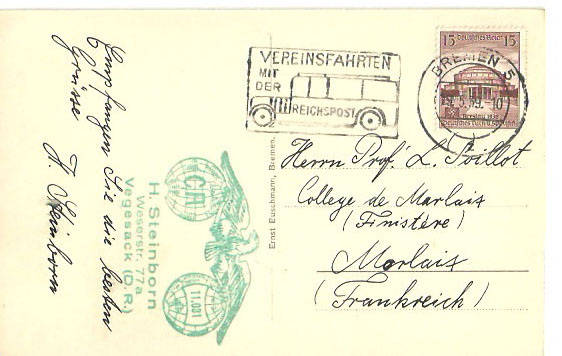 Empfangen Sie die besten
Grüsse H. Steinborn
C.R.I.
11.081
H. Steinborn
Weserstr. 77a
Vegesack (D.R.)
Ernst Euschmann, Bremen.
VEREINSFAHRTEN
MIT
DER
REICHSPOST
15 Deutsches Reich 15
BREMEN 5
5.39.-10
Breslau 1938
Herrn Prof. L. Poillot
College de Morlaix
(Finistère)
Morlaix
(Frankreich)